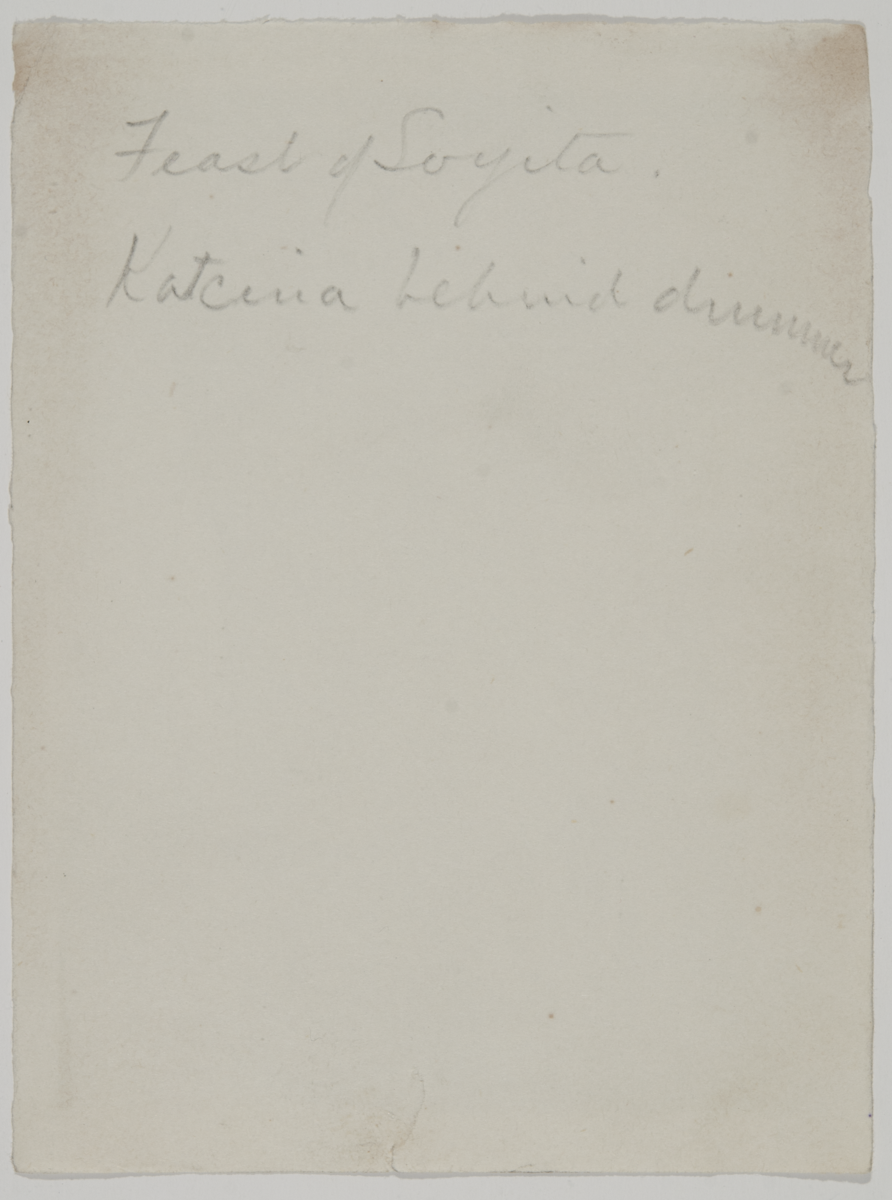 Feast of Soyita.
Katcina behind drummer